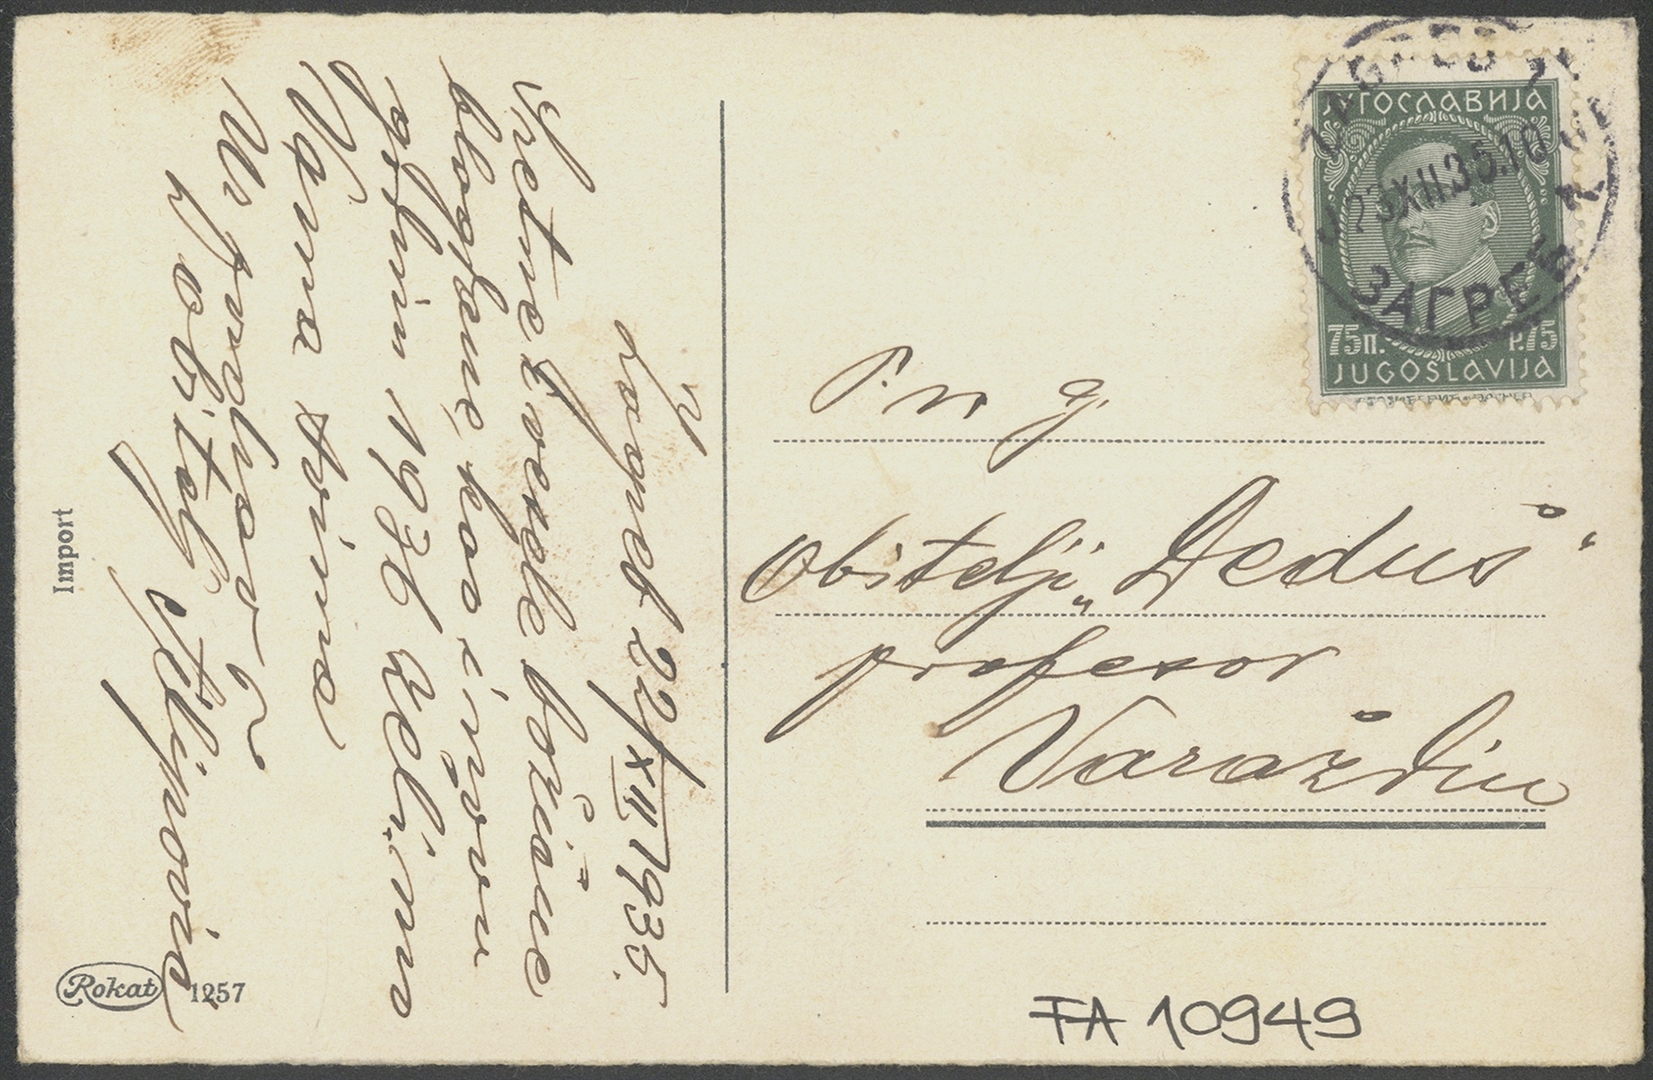 Zagreb 22/XII 1935.
Sretne i vesele božićne
blagdane kao i novu
godinu 1936 želimo
Vama svima
Mi svi
obitelj Filipović
Import
Rokat 1257
ЈУГОСЛАВИЈА
75п. P.75
JUGOSLAVIJA
ZAGREB
23.XII.35.10
ЗАГРЕБ
P. n. g.
Obitelji „Deduš“
profesor
Varaždin
FA 10949